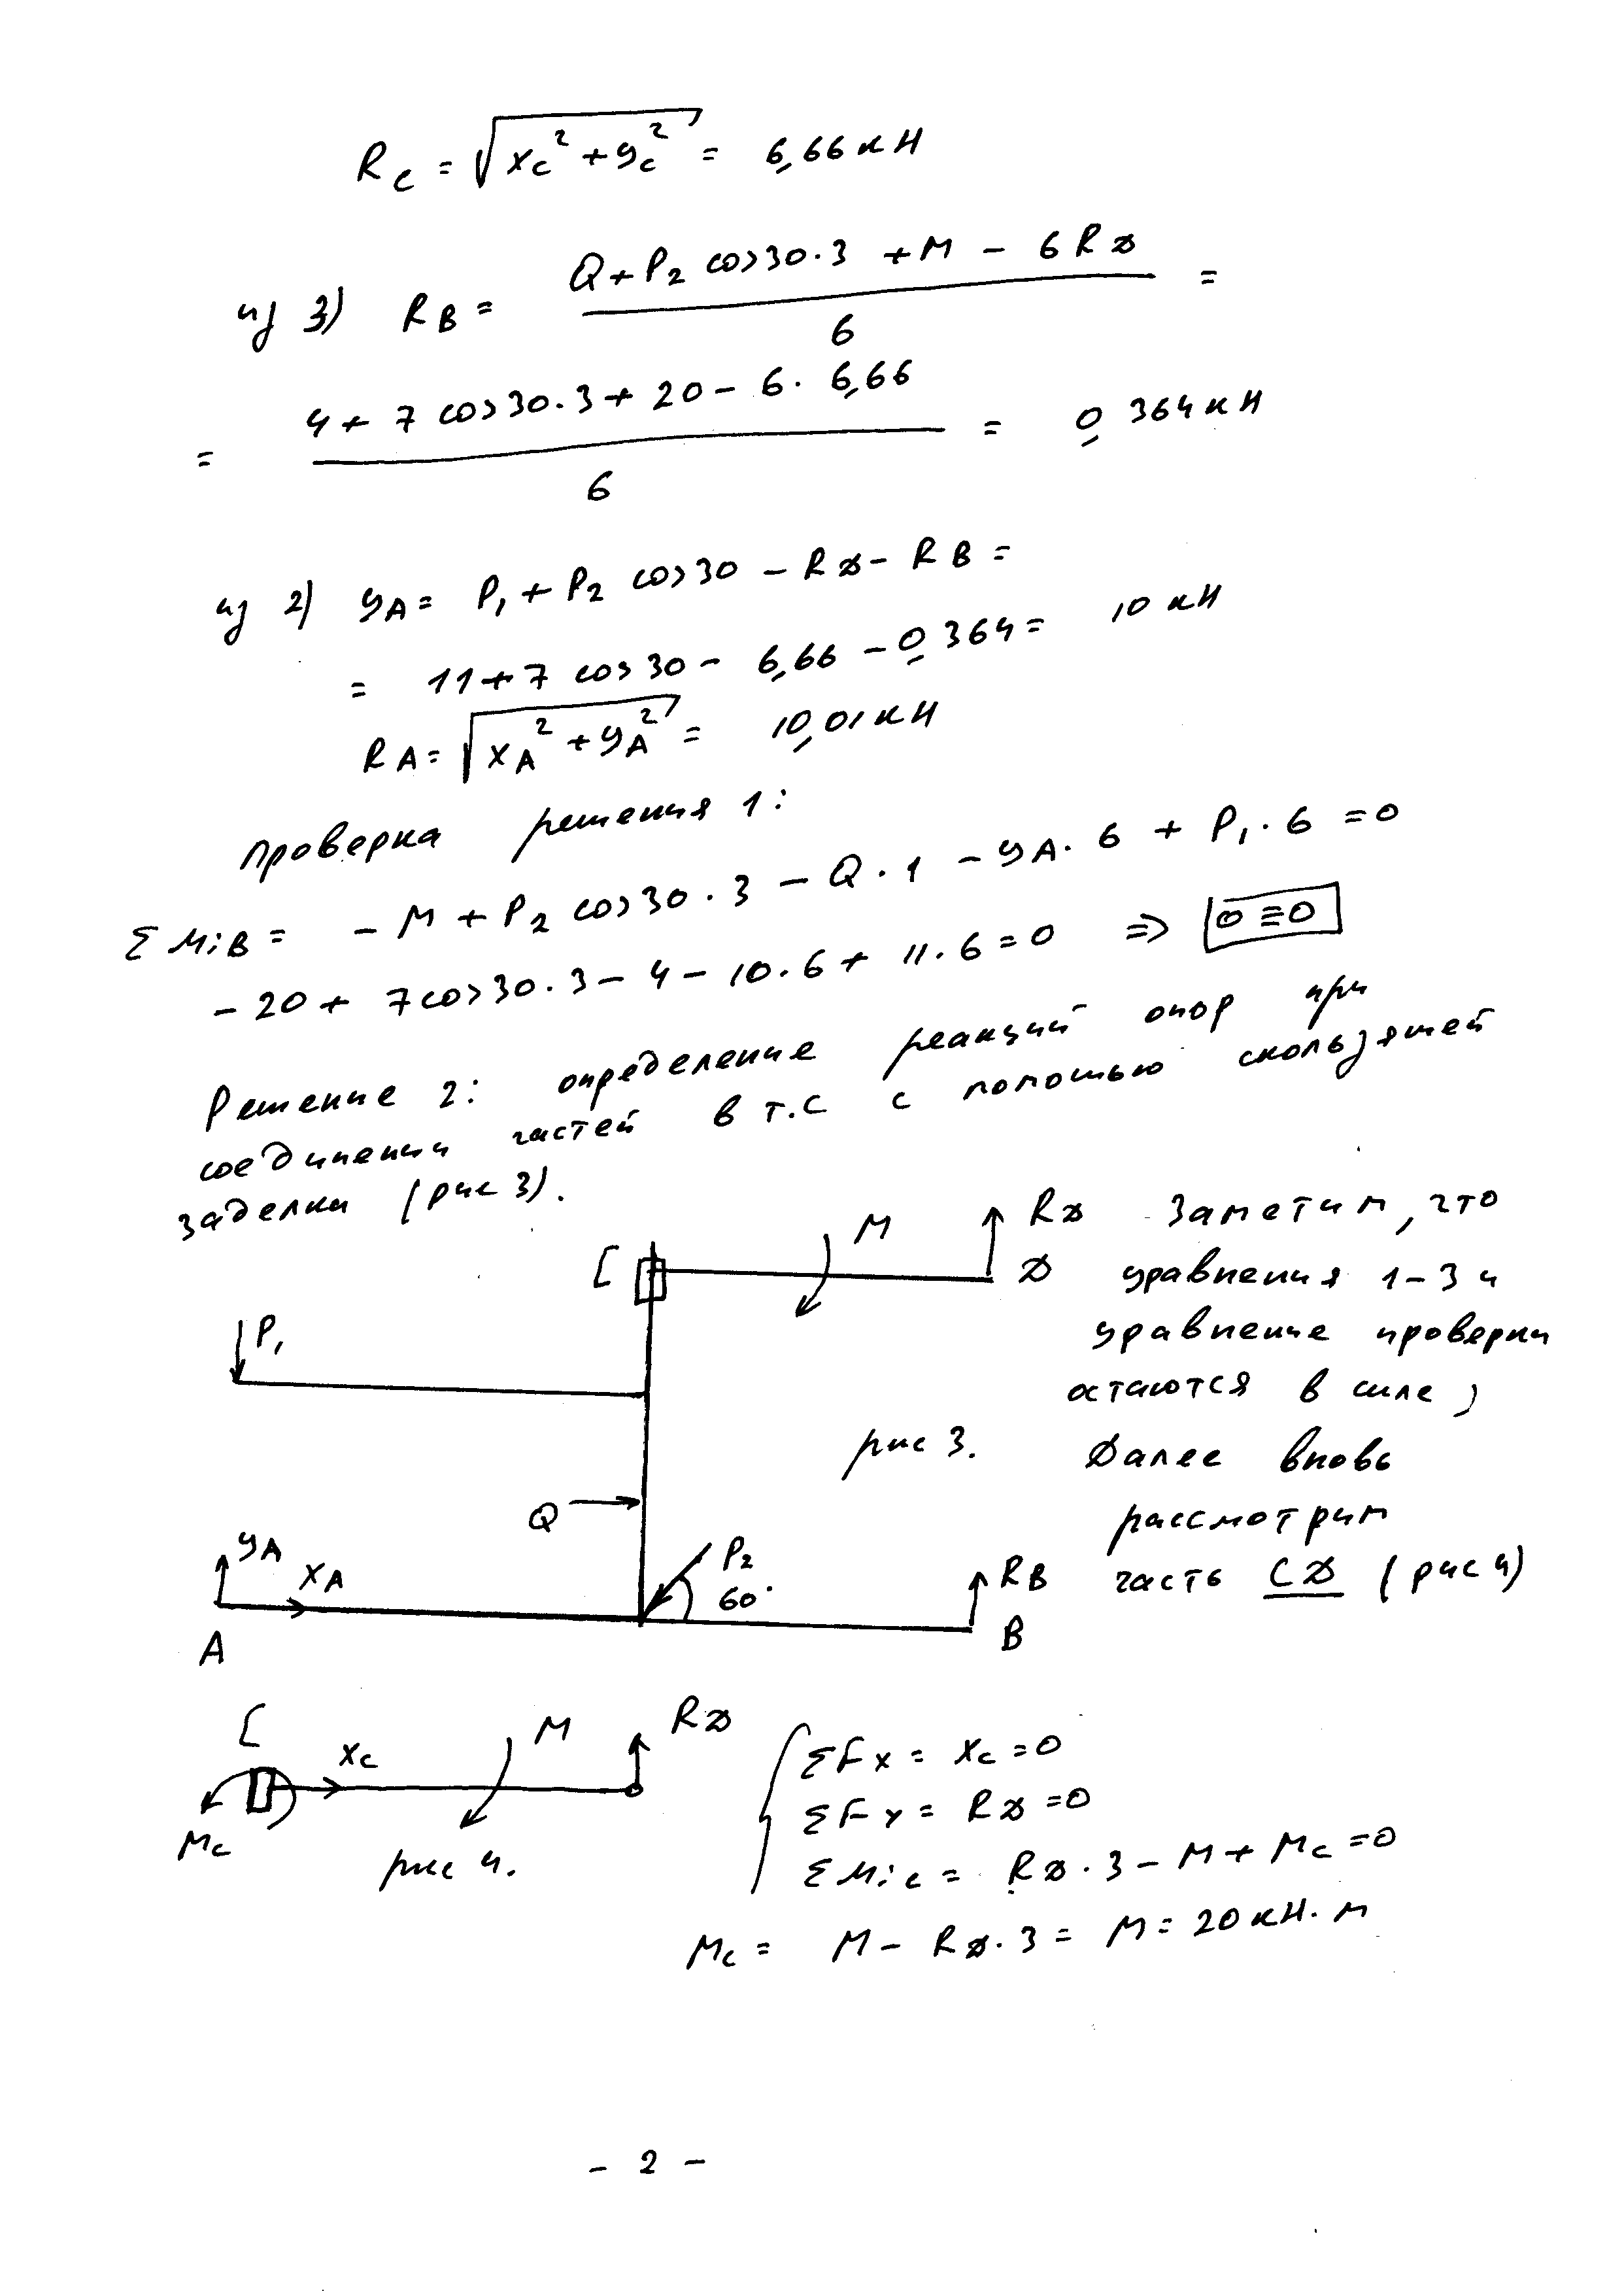 R_C = √(x_C² + y_C²) = 6,66 кН
из 3) R_B = (Q + P₂ cos30·3 + M − 6 R_D) / 6 =
= (4 + 7 cos30·3 + 20 − 6·6,66) / 6 = 0,364 кН
из 2) y_A = P₁ + P₂ cos30 − R_D − R_B =
= 11 + 7 cos30 − 6,66 − 0,364 = 10 кН
R_A = √(x_A² + y_A²) = 10,01 кН
Проверка решения 1:
Σ M_iB = − M + P₂ cos30·3 − Q·1 − y_A·6 + P₁·6 = 0
− 20 + 7 cos30·3 − 4 − 10·6 + 11·6 = 0 ⇒ 0 ≡ 0
Решение 2: определение реакций опор при
соединении частей в т.С с помощью скользящей
заделки (рис 3).
C M R_D D
P₁
Q
y_A x_A P₂ 60° R_B
A B
рис 3.
Заметим, что
уравнения 1-3 и
уравнение проверки
остаются в силе,
Далее вновь
рассмотрим
часть CD (рис 4)
C x_C M R_D
M_C
рис 4.
ΣF_x = x_C = 0
ΣF_y = R_D = 0
ΣM_iC = R_D·3 − M + M_C = 0
M_C = M − R_D·3 = M = 20 кН·м
- 2 -